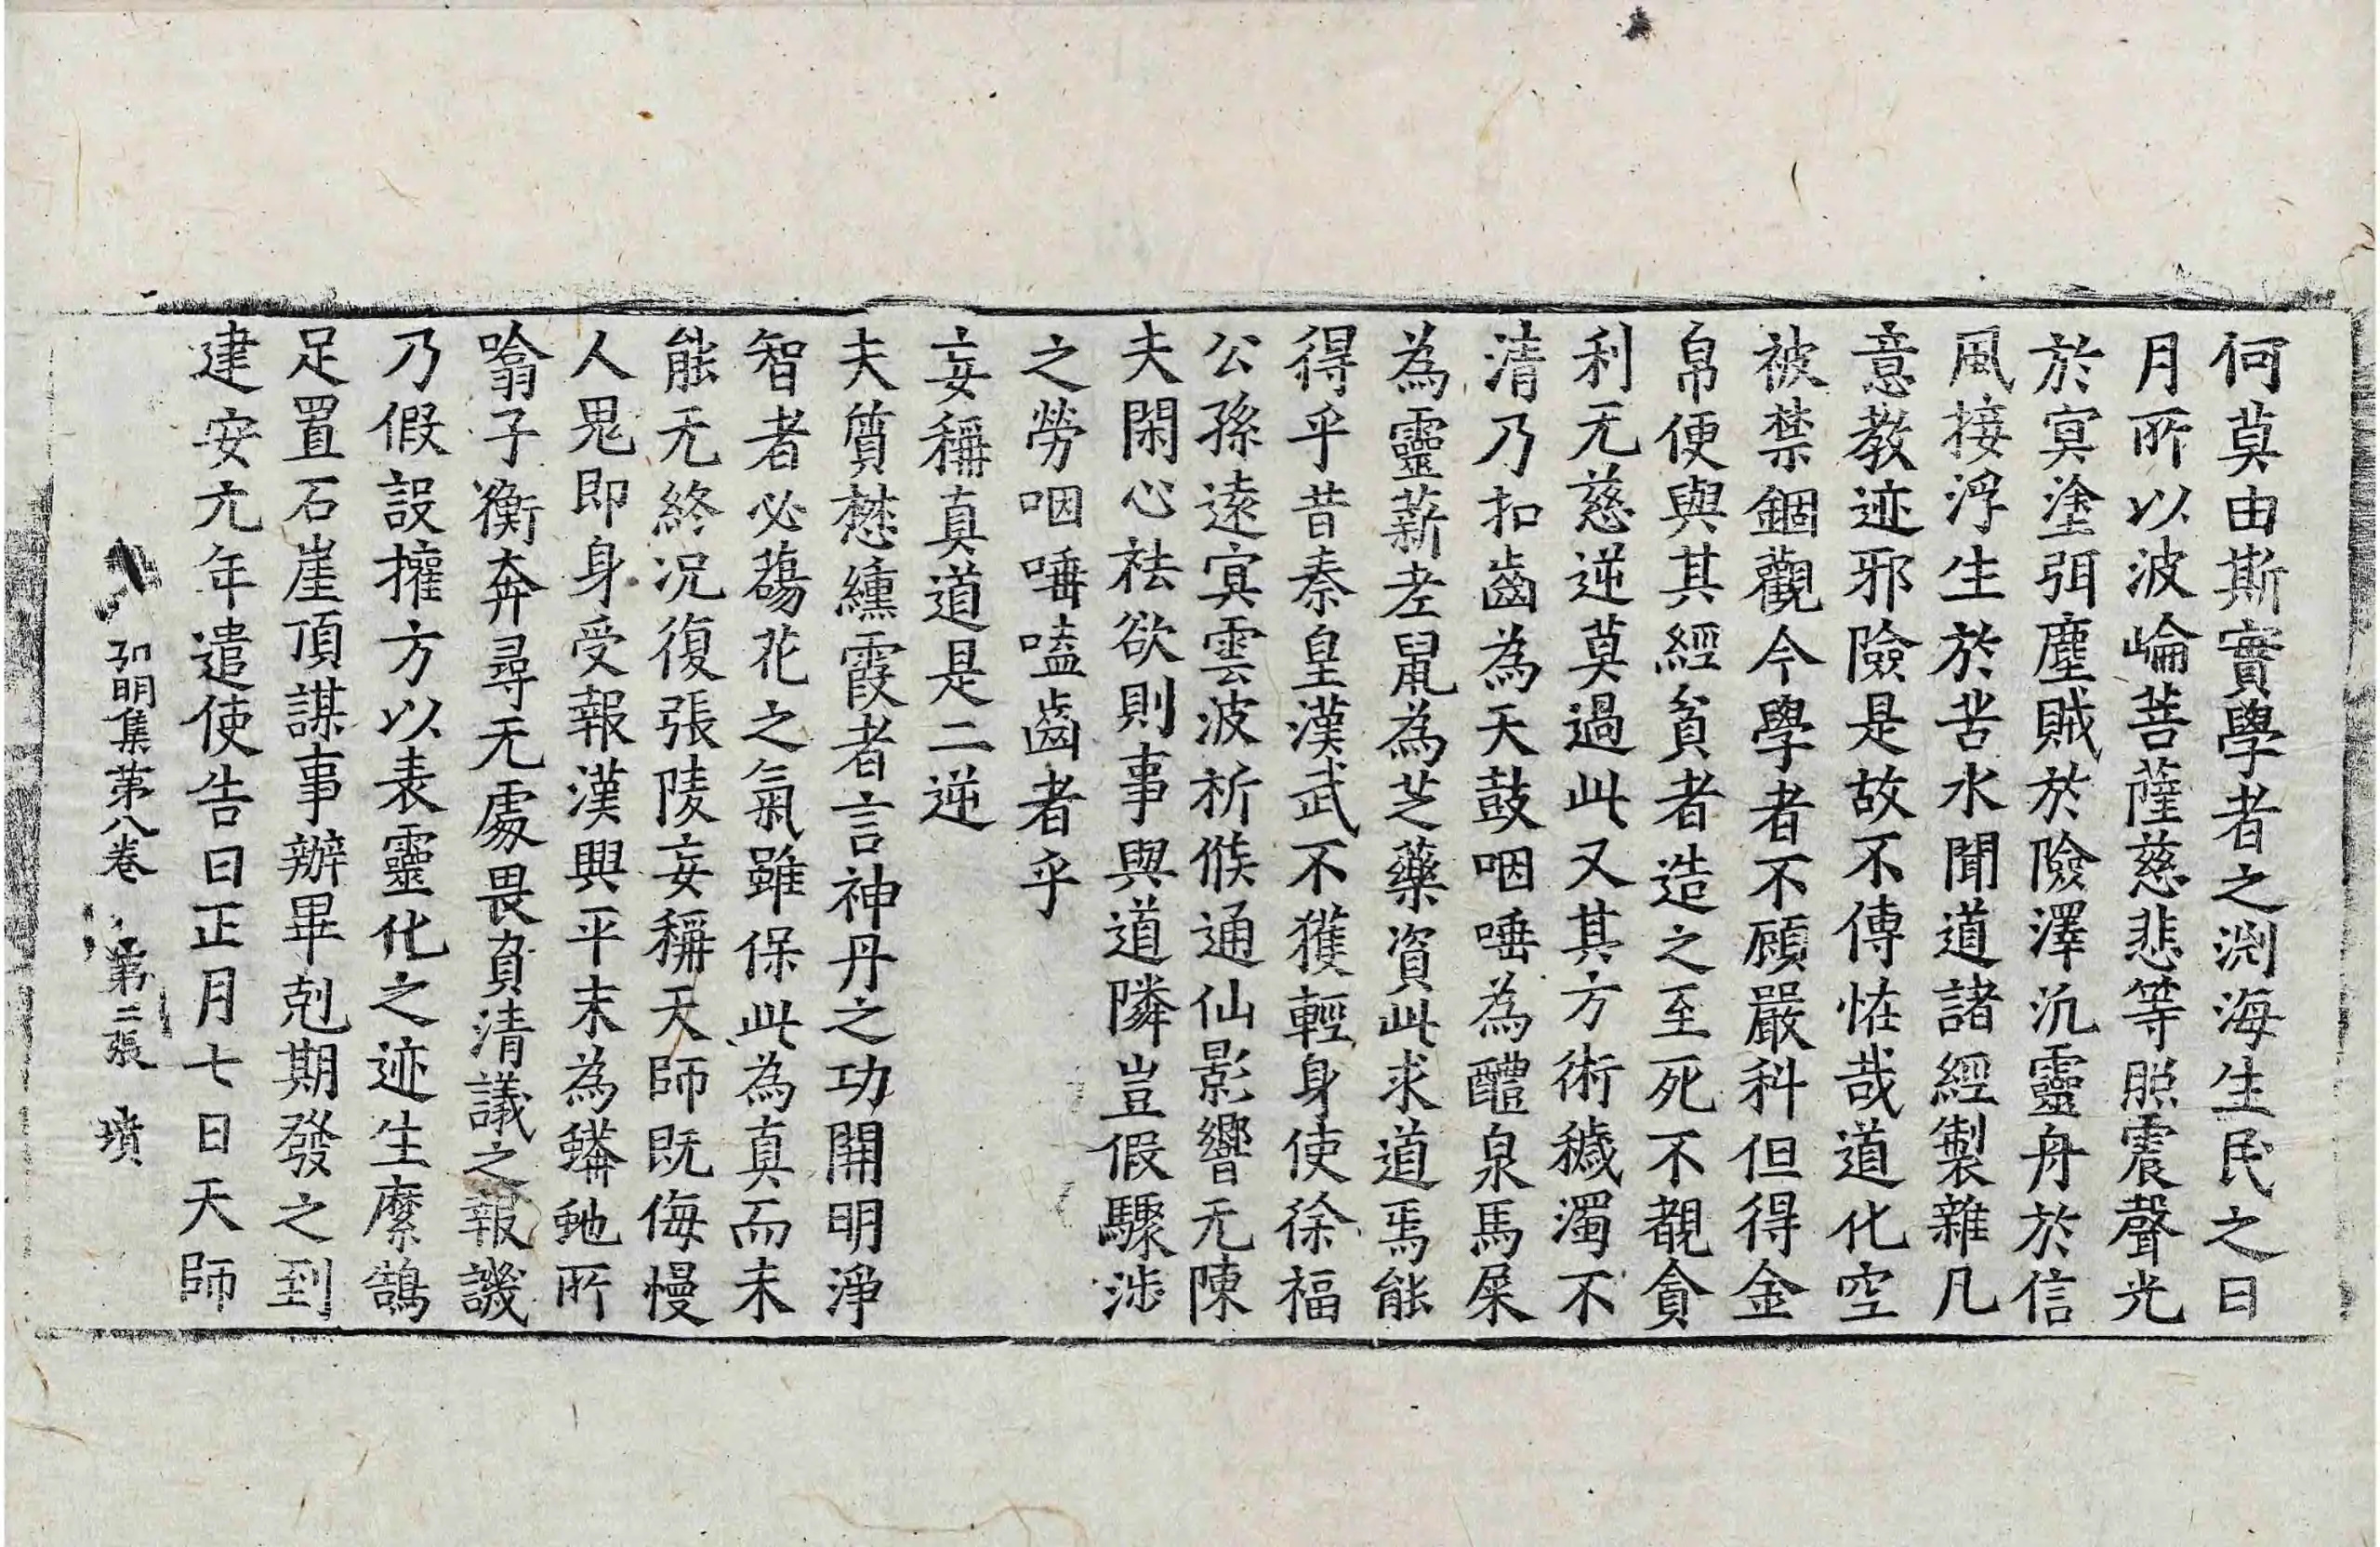 何莫由斯實學者之渕海生民之日
月所以波崘菩薩慈悲等照震聲光
於冥塗弭塵賊於險澤汎靈舟於信
風接浮生於苦水聞道諸經製雜凡
意教迹邪險是故不傳恠哉道化空
被禁錮觀今學者不顧嚴科但得金
帛便與其經貧者造之至死不覩貪
利无慈逆莫過此又其方術穢濁不
清乃扣齒為天鼓咽唾為醴泉馬屎
為靈薪老鼠為芝藥資此求道焉能
得乎昔秦皇漢武不獲輕身使徐福
公孫遠冥雲波祈候通仙影響无陳
夫閑心祛欲則事與道隣豈假驟涉
之勞咽唾嗑齒者乎
妄稱真道是二逆
夫質懋纁霞者言神丹之功開明淨
智者必蕩花之氣雖保此為真而未
能无終况復張陵妄稱天師既侮慢
人鬼即身受報漢興平末為蟒虵所
噏子衡奔尋无處畏負清議之報譏
乃假設權方以表靈化之迹生縻鵠
足置石崖頂謀事辦畢剋期發之到
建安元年遣使告曰正月七日天師
弘明集第八卷 第二張 墳